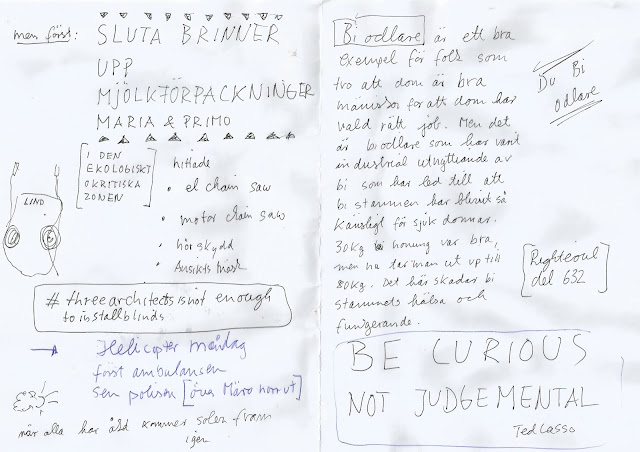 men först:
SLUTA BRINNER
UPP
MJÖLKFÖRPACKNINGER
MARIA & PRIMO
I DEN
EKOLOGISKT
OKRITISKA
ZONEN
LIND
hittade
• el chain saw
• motor chain saw
• hörskydd
• Ansikts mask
# threearchitectsisnot enough
to installblinds
→ Helicopter måndag
först ambulansen
sen polisen [över Märo norrut]
när alla har åkt kommer solen fram
igen
Bi odlare är ett bra
exempel för folk som
tro att dom är bra
människor for att dom har
vald rätt job. Men det
är biodlare som har varit
industrial utnyttiande av
bi som har led till att
bi stammen har blivit så
känsligt för sjuk domar.
30kg honung var bra,
men nu tar man ut up till
80kg. Det här skadar bi
stammets hälsa och
fungerande.
Du Bi
odlare
[Righteous
del 632]
BE CURIOUS
NOT JUDGEMENTAL
Ted Lasso